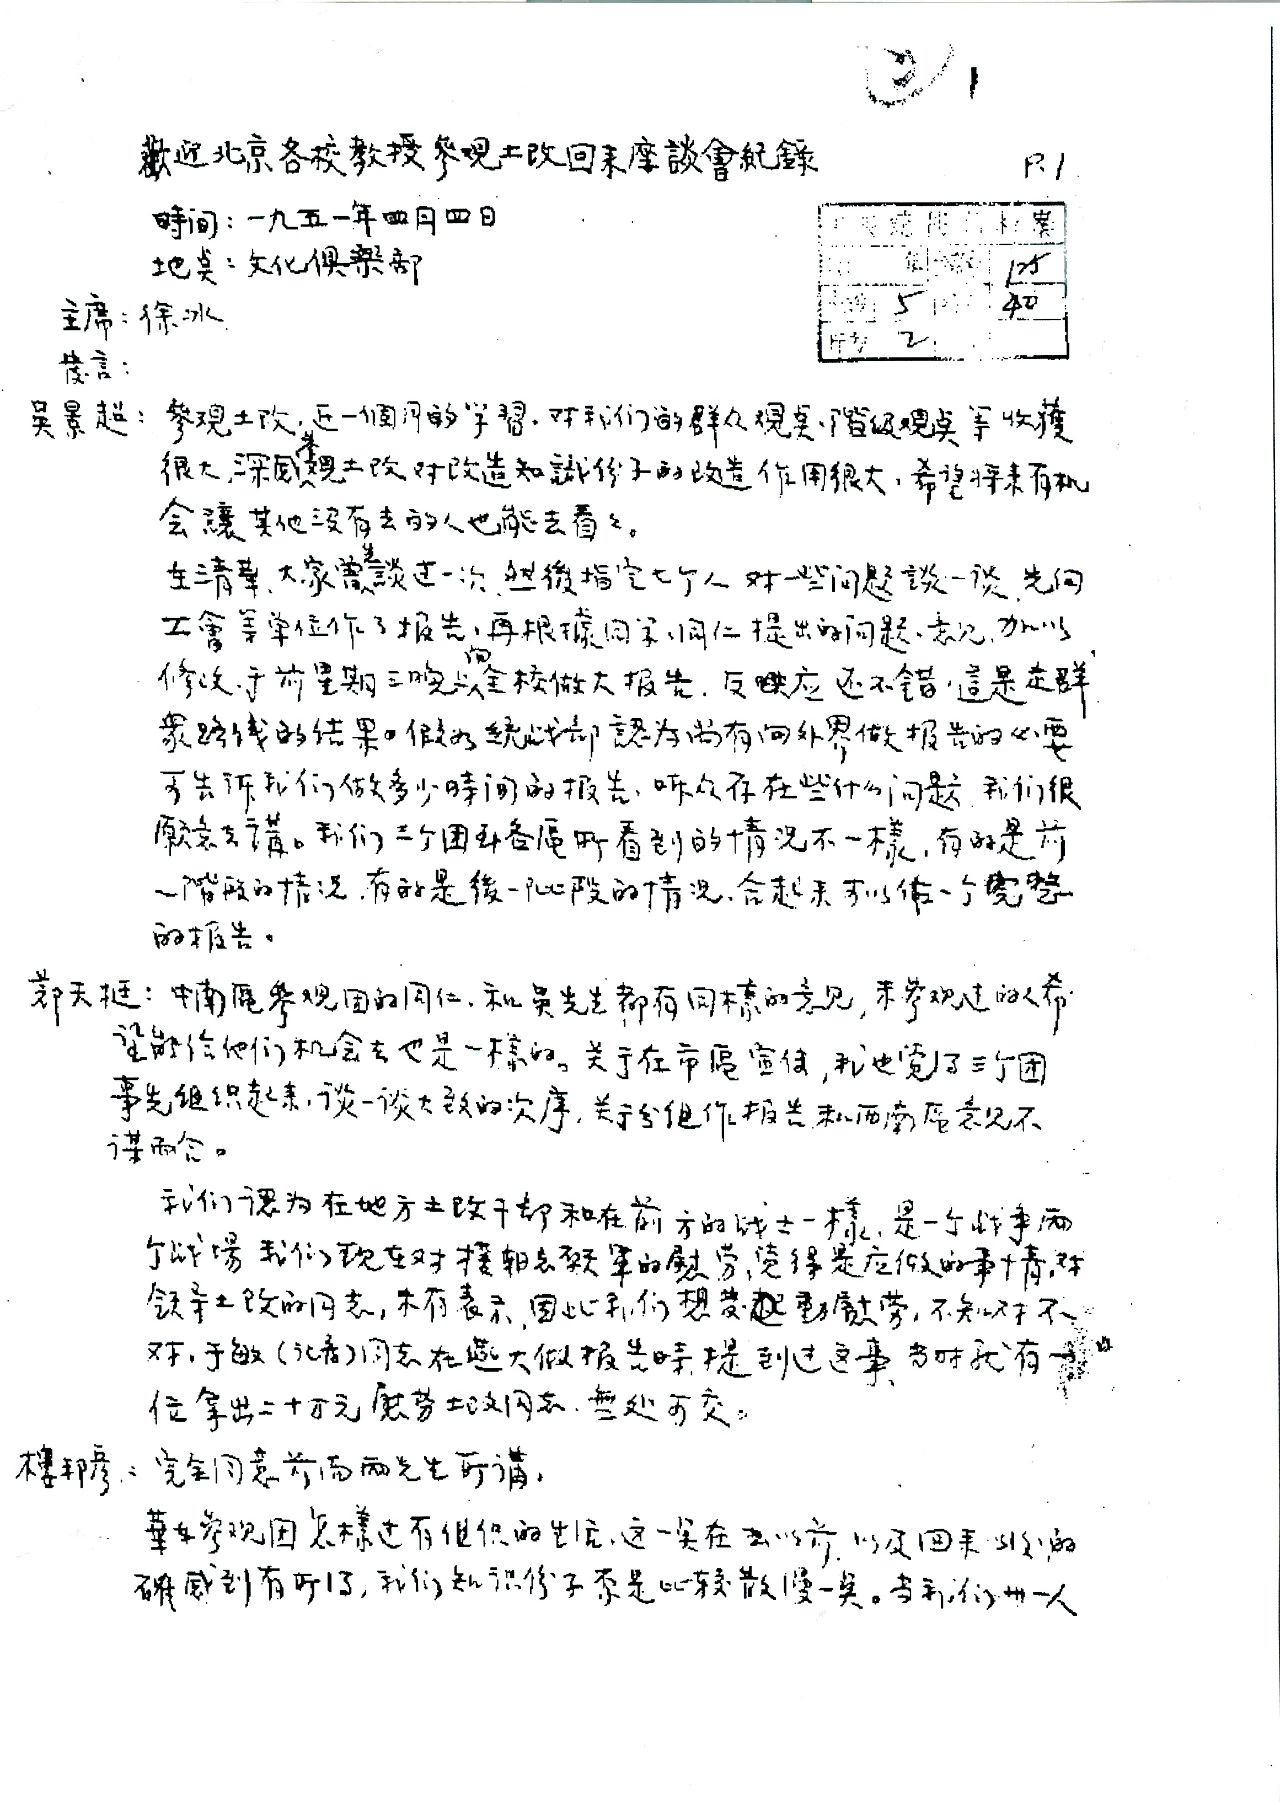 1
歡迎北京各校教授參观土改回来座談會紀錄
P.1
時间：一九五一年四月四日
地点：文化俱樂部
125
5 40
2
主席：徐冰
发言：
吳景超：參观土改，近一個月的学習，对我们的群众观点，階级观点等收獲
很大，深感参观土改对改造知識份子的改造作用很大，希望将来有机
会讓其他没有去的人也能去看々。
在清華，大家曾先談过一次，然後指定七个人对一些问题談一谈，先向
工會等单位作了报告，再根據同学，同仁提出的问题，意见，加以
修改，于前星期三晚向全校做大报告，反映应还不錯，這是走群
衆路线的结果。假如統战部認为尚有向外界做报告的必要
可告訴我们做多少時间的报告，听众存在些什么问题，我们很
願意去講。我们三个团到各區所看到的情况不一樣，有的是前
一階段的情况，有的是後一阶段的情况，合起来可以做一个完整
的报告。
郑天挺：中南區參观团的同仁，和吳先生都有同樣的意见，未參观过的人希
望能给他们机会去也是一樣的。关于在市區宣传，我也觉得三个团
事先组织起来，谈一谈大致的次序，关于分组作报告和西南區意见不
谋而合。
我们認为在地方土改干部和在前方的战士一樣，是一个战争两
个战場，我们现在对援朝志願軍的慰劳，觉得是应做的事情，对
領导土改的同志，未有表示，因此我们想发起動慰劳，不知对不
对，于敏（记者）同志在燕大做报告時提到过这事，当时就有一
位拿出二十万元慰劳土改同志，無处可交。
樓邦彦：完全同意前面两先生所講。
華东參观团怎樣过有组织的生活，这一点在去以前，以及回来以後，的
確感到有所得，我们知识份子原是比较散漫一点。当我们卅一人